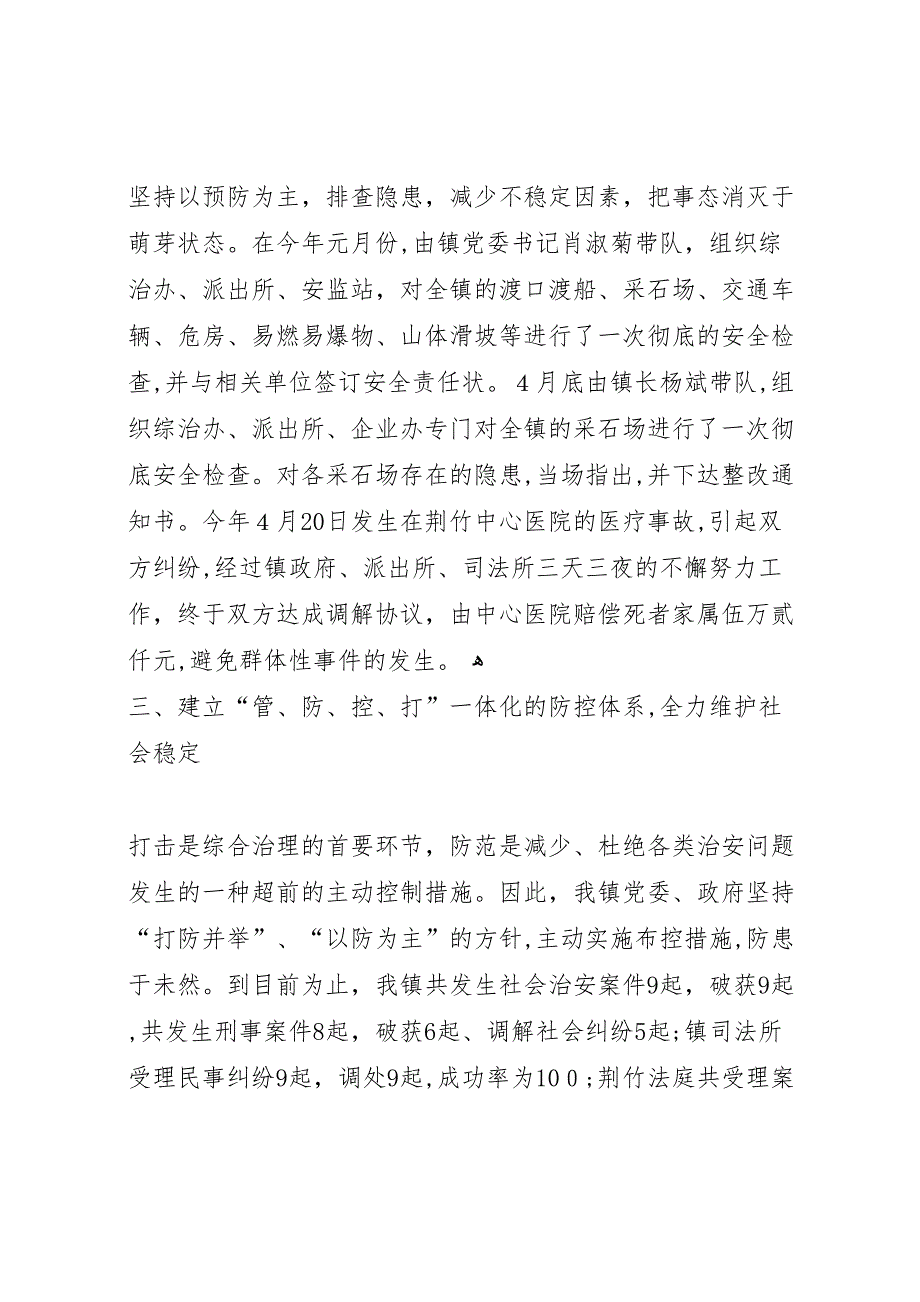 坚持以预防为主，排查隐患，减少不稳定因素，把事态消灭于
萌芽状态。在今年元月份,由镇党委书记肖淑菊带队，组织综
治办、派出所、安监站，对全镇的渡口渡船、采石场、交通车
辆、危房、易燃易爆物、山体滑坡等进行了一次彻底的安全检
查,并与相关单位签订安全责任状。４月底由镇长杨斌带队,组
织综治办、派出所、企业办专门对全镇的采石场进行了一次彻
底安全检查。对各采石场存在的隐患,当场指出,并下达整改通
知书。今年４月20日发生在荆竹中心医院的医疗事故,引起双
方纠纷,经过镇政府、派出所、司法所三天三夜的不懈努力工
作，终于双方达成调解协议，由中心医院赔偿死者家属伍万贰
仟元,避免群体性事件的发生。ﻫ
三、建立“管、防、控、打”一体化的防控体系,全力维护社
会稳定
打击是综合治理的首要环节，防范是减少、杜绝各类治安问题
发生的一种超前的主动控制措施。因此，我镇党委、政府坚持
“打防并举”、“以防为主”的方针,主动实施布控措施,防患
于未然。到目前为止，我镇共发生社会治安案件9起，破获9起
,共发生刑事案件8起，破获6起、调解社会纠纷5起;镇司法所
受理民事纠纷9起，调处9起,成功率为10０;荆竹法庭共受理案